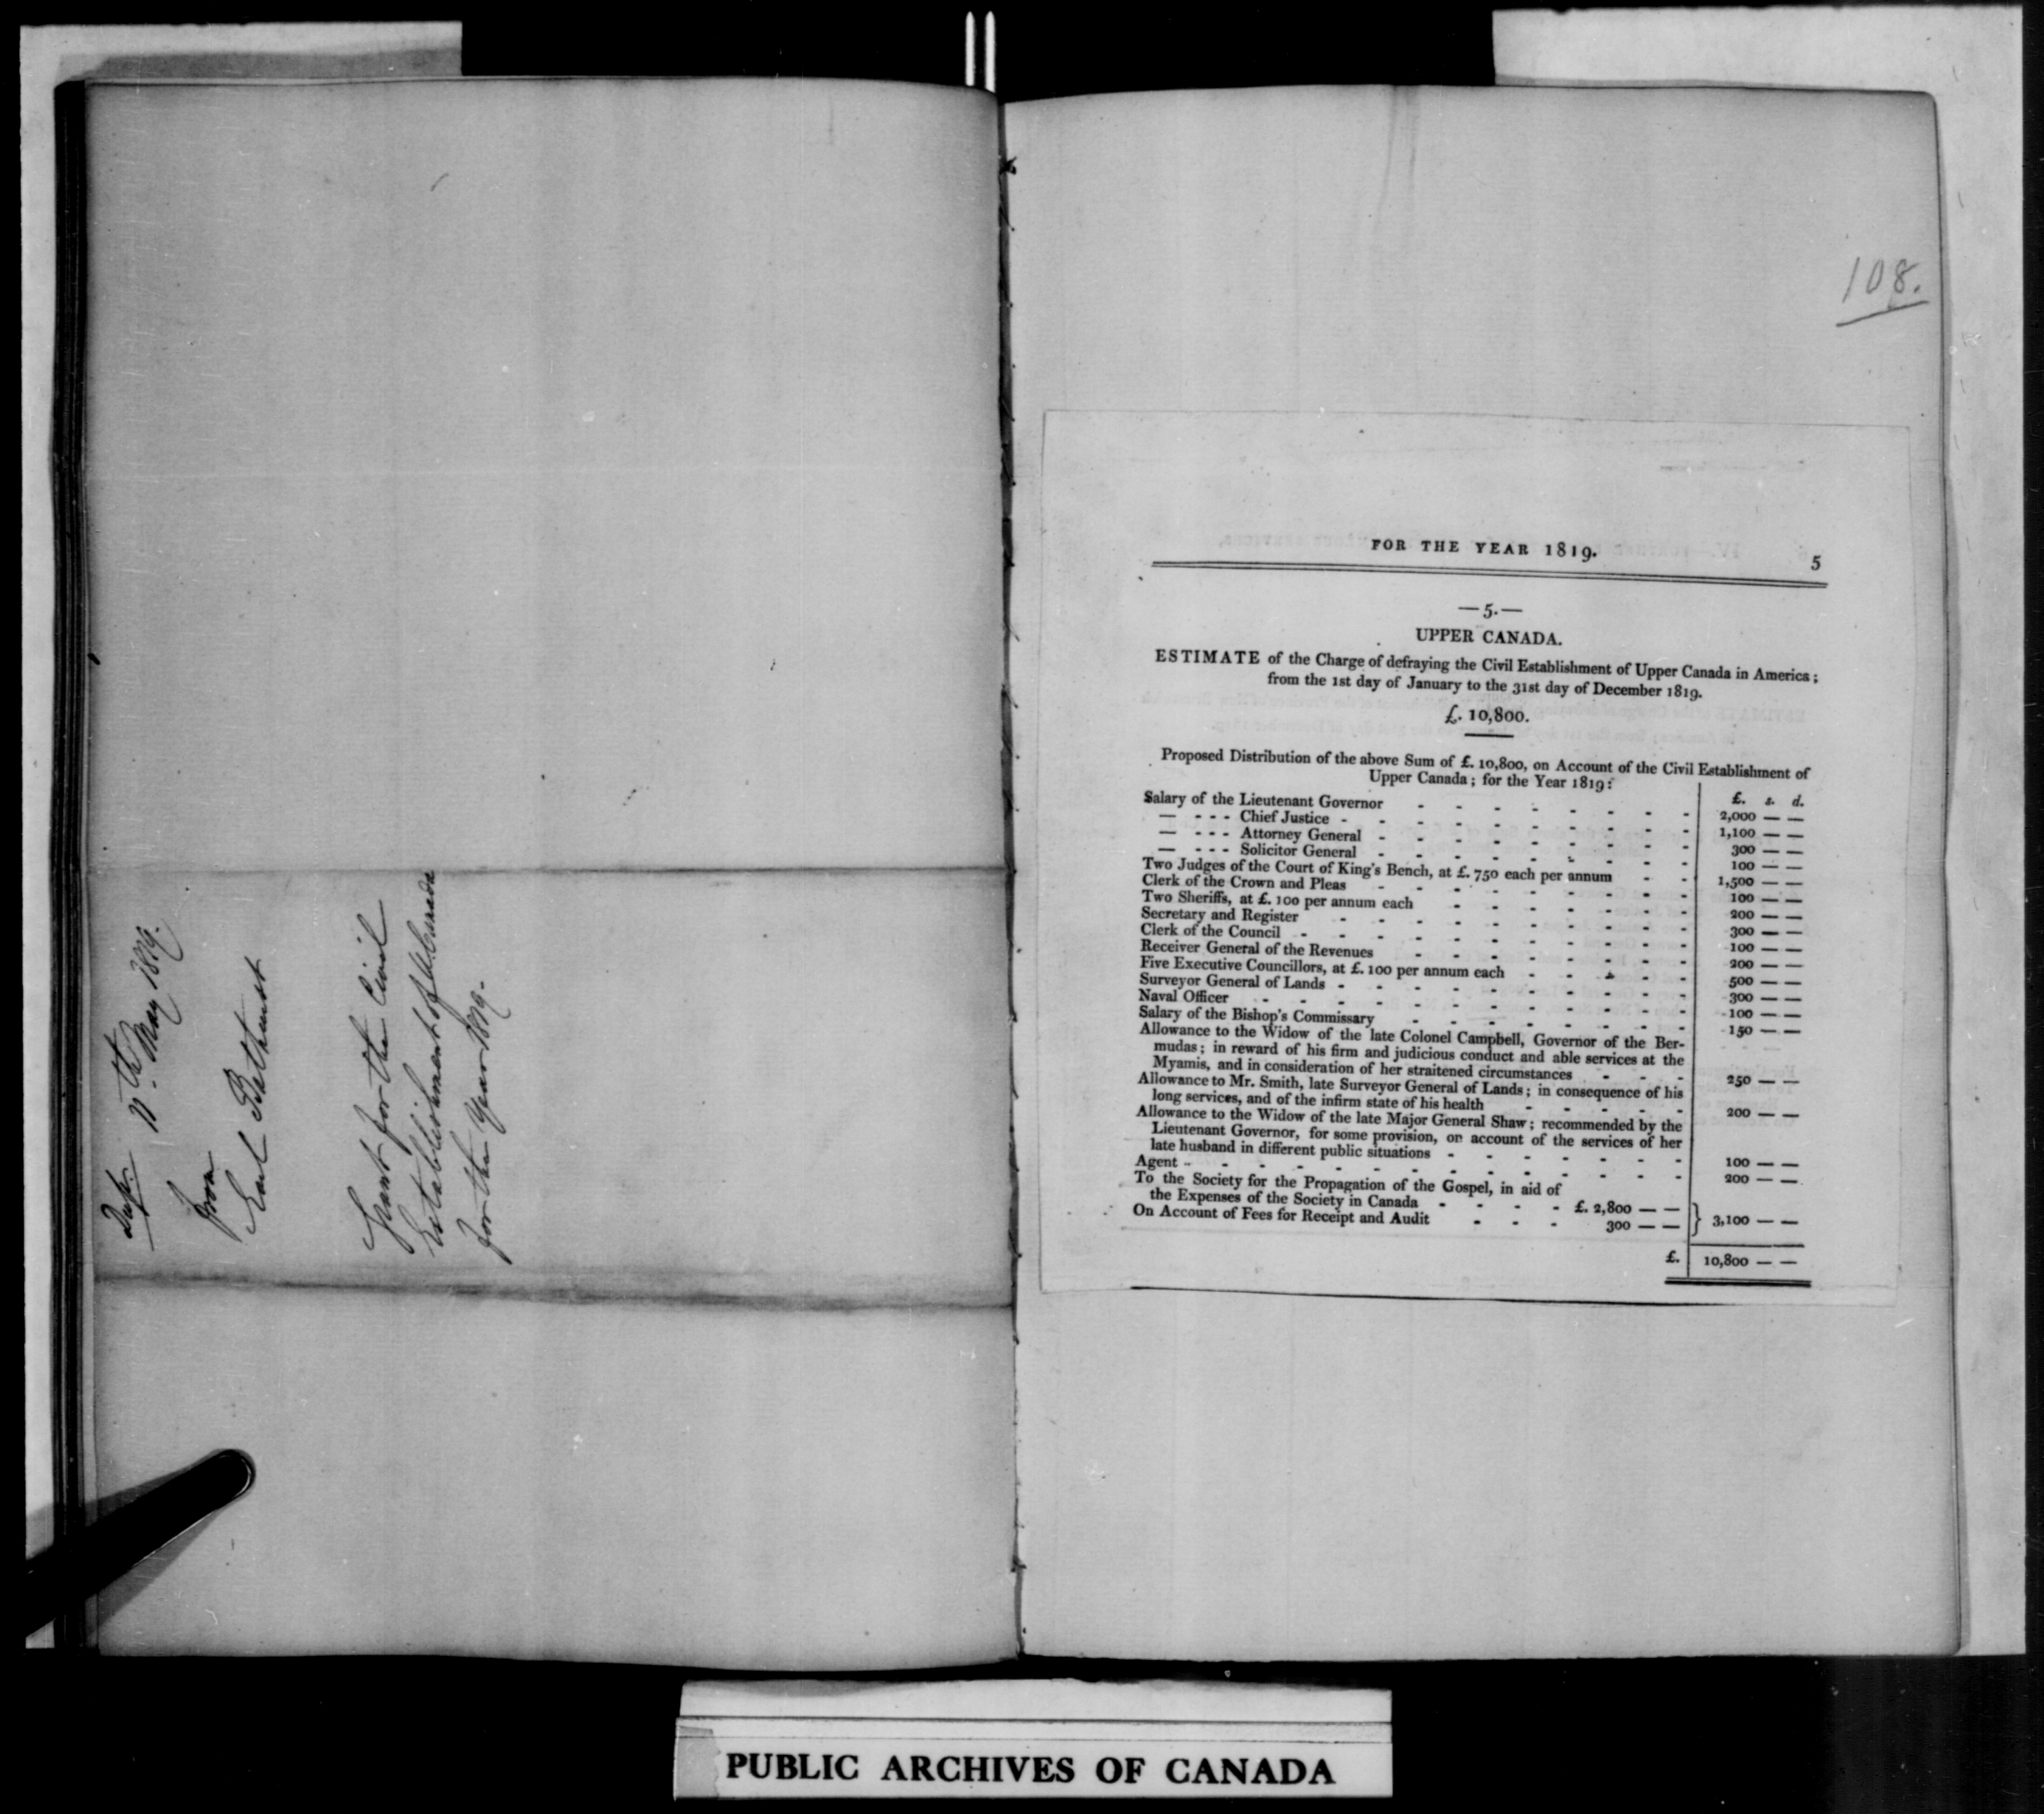 Dup.
11th May 1819.
From
Earl Bathurst
Grant for the Civil
Establishment of U. Canada
for the Year 1819.
108.
FOR THE YEAR 1819. 5
— 5. —
UPPER CANADA.
ESTIMATE of the Charge of defraying the Civil Establishment of Upper Canada in America;
from the 1st day of January to the 31st day of December 1819.
£. 10,800.
Proposed Distribution of the above Sum of £. 10,800, on Account of the Civil Establishment of
Upper Canada; for the Year 1819:
£. s. d.
Salary of the Lieutenant Governor - - - - - - - - 2,000 — —
— - - - Chief Justice - - - - - - - - - - 1,100 — —
— - - - Attorney General - - - - - - - - - 300 — —
— - - - Solicitor General - - - - - - - - - 100 — —
Two Judges of the Court of King's Bench, at £. 750 each per annum - - 1,500 — —
Clerk of the Crown and Pleas - - - - - - - - - 100 — —
Two Sheriffs, at £. 100 per annum each - - - - - - - 200 — —
Secretary and Register - - - - - - - - - - 300 — —
Clerk of the Council - - - - - - - - - - - 100 — —
Receiver General of the Revenues - - - - - - - - 200 — —
Five Executive Councillors, at £. 100 per annum each - - - - - 500 — —
Surveyor General of Lands - - - - - - - - - - 300 — —
Naval Officer - - - - - - - - - - - - 100 — —
Salary of the Bishop's Commissary - - - - - - - - 150 — —
Allowance to the Widow of the late Colonel Campbell, Governor of the Ber-
mudas; in reward of his firm and judicious conduct and able services at the
Myamis, and in consideration of her straitened circumstances - - - 250 — —
Allowance to Mr. Smith, late Surveyor General of Lands; in consequence of his
long services, and of the infirm state of his health - - - - - 200 — —
Allowance to the Widow of the late Major General Shaw; recommended by the
Lieutenant Governor, for some provision, on account of the services of her
late husband in different public situations - - - - - - - 100 — —
Agent - - - - - - - - - - - - - - 200 — —
To the Society for the Propagation of the Gospel, in aid of
the Expenses of the Society in Canada - - - - £. 2,800 — —
On Account of Fees for Receipt and Audit - - - 300 — — } 3,100 — —
£. 10,800 — —
PUBLIC ARCHIVES OF CANADA